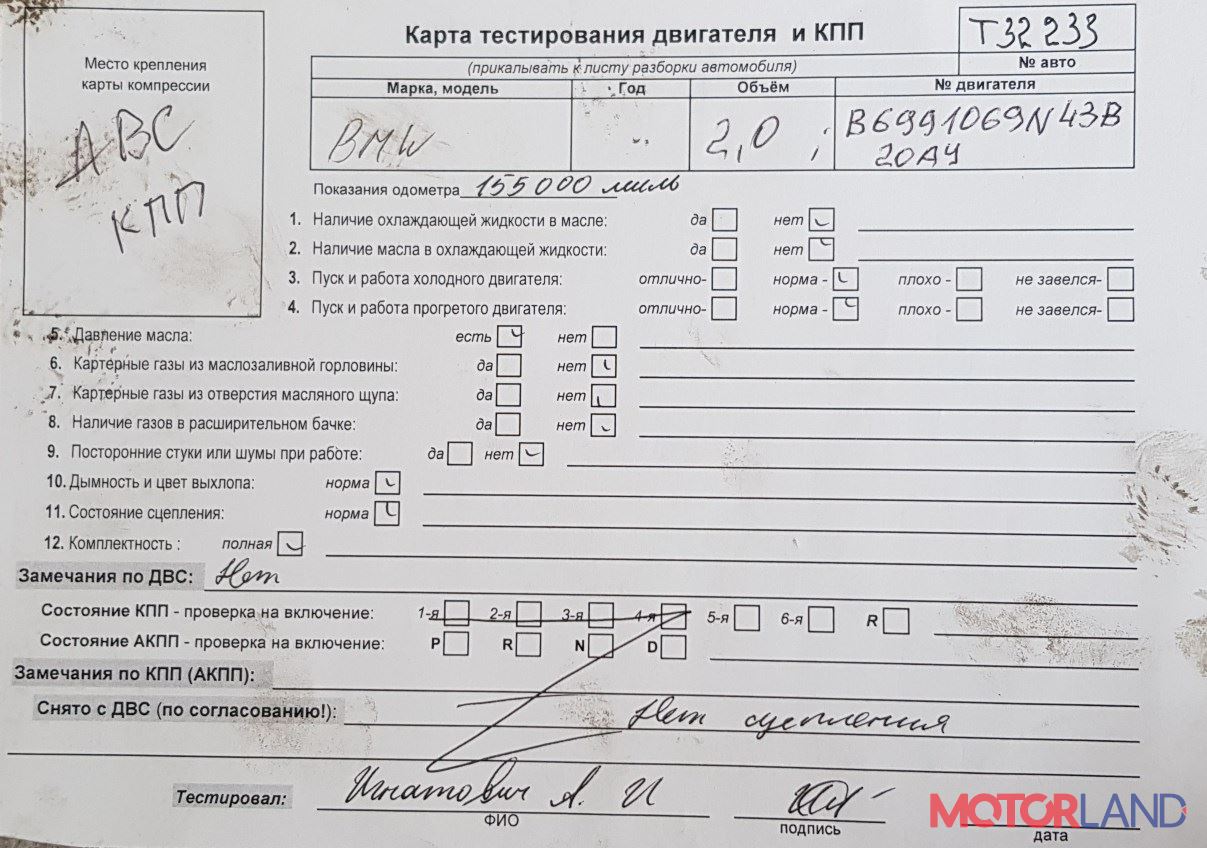 Карта тестирования двигателя и КПП
Т32 233
№ авто
(прикалывать к листу разборки автомобиля)
Место крепления
карты компрессии
ДВС
КПП
Марка, модель Год Объём № двигателя
BMW -,, 2,0 ; B6991069N43B
20AY
Показания одометра 155000 миль
1. Наличие охлаждающей жидкости в масле: да нет
2. Наличие масла в охлаждающей жидкости: да нет
3. Пуск и работа холодного двигателя: отлично- норма - плохо - не завелся-
4. Пуск и работа прогретого двигателя: отлично- норма - плохо - не завелся-
5. Давление масла: есть нет
6. Картерные газы из маслозаливной горловины: да нет
7. Картерные газы из отверстия масляного щупа: да нет
8. Наличие газов в расширительном бачке: да нет
9. Посторонние стуки или шумы при работе: да нет
10. Дымность и цвет выхлопа: норма
11. Состояние сцепления: норма
12. Комплектность : полная
Замечания по ДВС: Нет
Состояние КПП - проверка на включение: 1-я 2-я 3-я 4-я 5-я 6-я R
Состояние АКПП - проверка на включение: P R N D
Замечания по КПП (АКПП):
Снято с ДВС (по согласованию!): Нет сцепления
Тестировал: Игнатович А. И
ФИО подпись дата
MOTORLAND